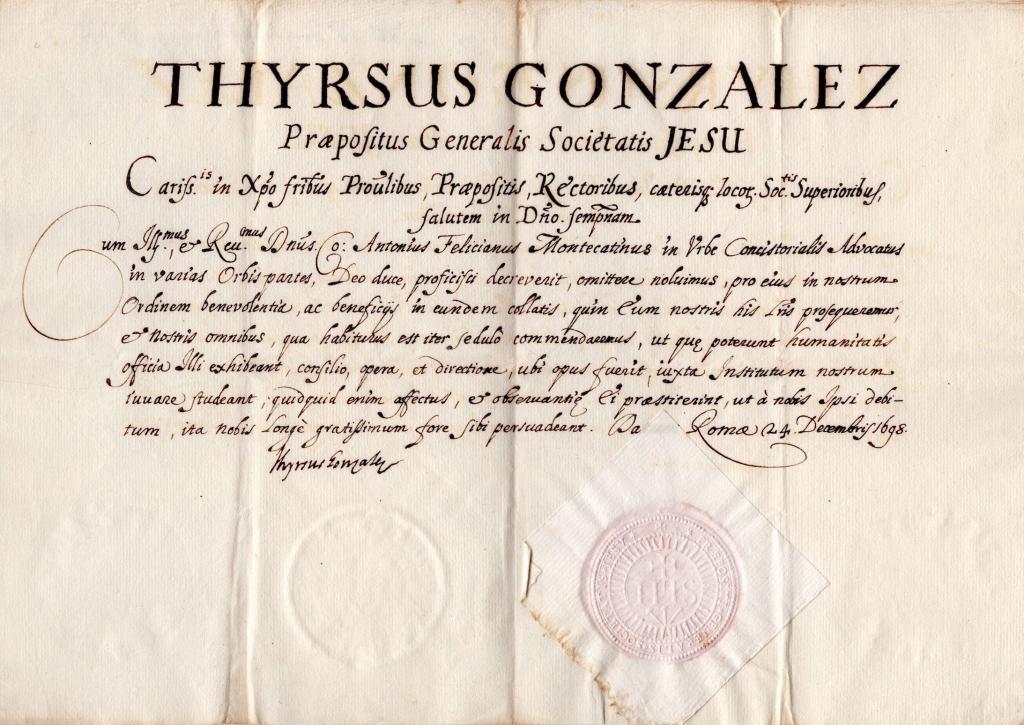 THYRSUS GONZALEZ
Præpositus Generalis Societatis JESU
Cariss.is in Xp̃o fr̃ibus Prou̅libus, Præpositis, Rectoribus, cæterisq; locoꝝ Soc.tis Superioribus,
salutem in Dño. sempr̃nam.
Cum Ill.mus, et Reu.mus Dñus. Co: Antonius Felicianus Montecatinus in Vrbe Concistorialis Advocatus
in varias Orbis partes, Deo duce, proficisci decreverit, omittere noluimus, pro eius in nostrum
Ordinem benevolentia, ac beneficijs in eundem collatis, quin Eum nostris his Lr̃is prosequeremur,
et Nostris omnibus, qua habiturus est iter sedulò commendaremus, ut quę poterunt humanitatis
officia Illi exhibeant, consilio, opera, et directione, ubi opus fuerit, iuxta Institutum nostrum
iuvare studeant, quidquid enim affectus, et observantię Ei præstiterint, ut à nobis Ipsi debi-
tum, ita nobis longè gratissimum fore sibi persuadeant. Romæ 24. Decembris 1698.
Thyrsus Gonzalez
IHS